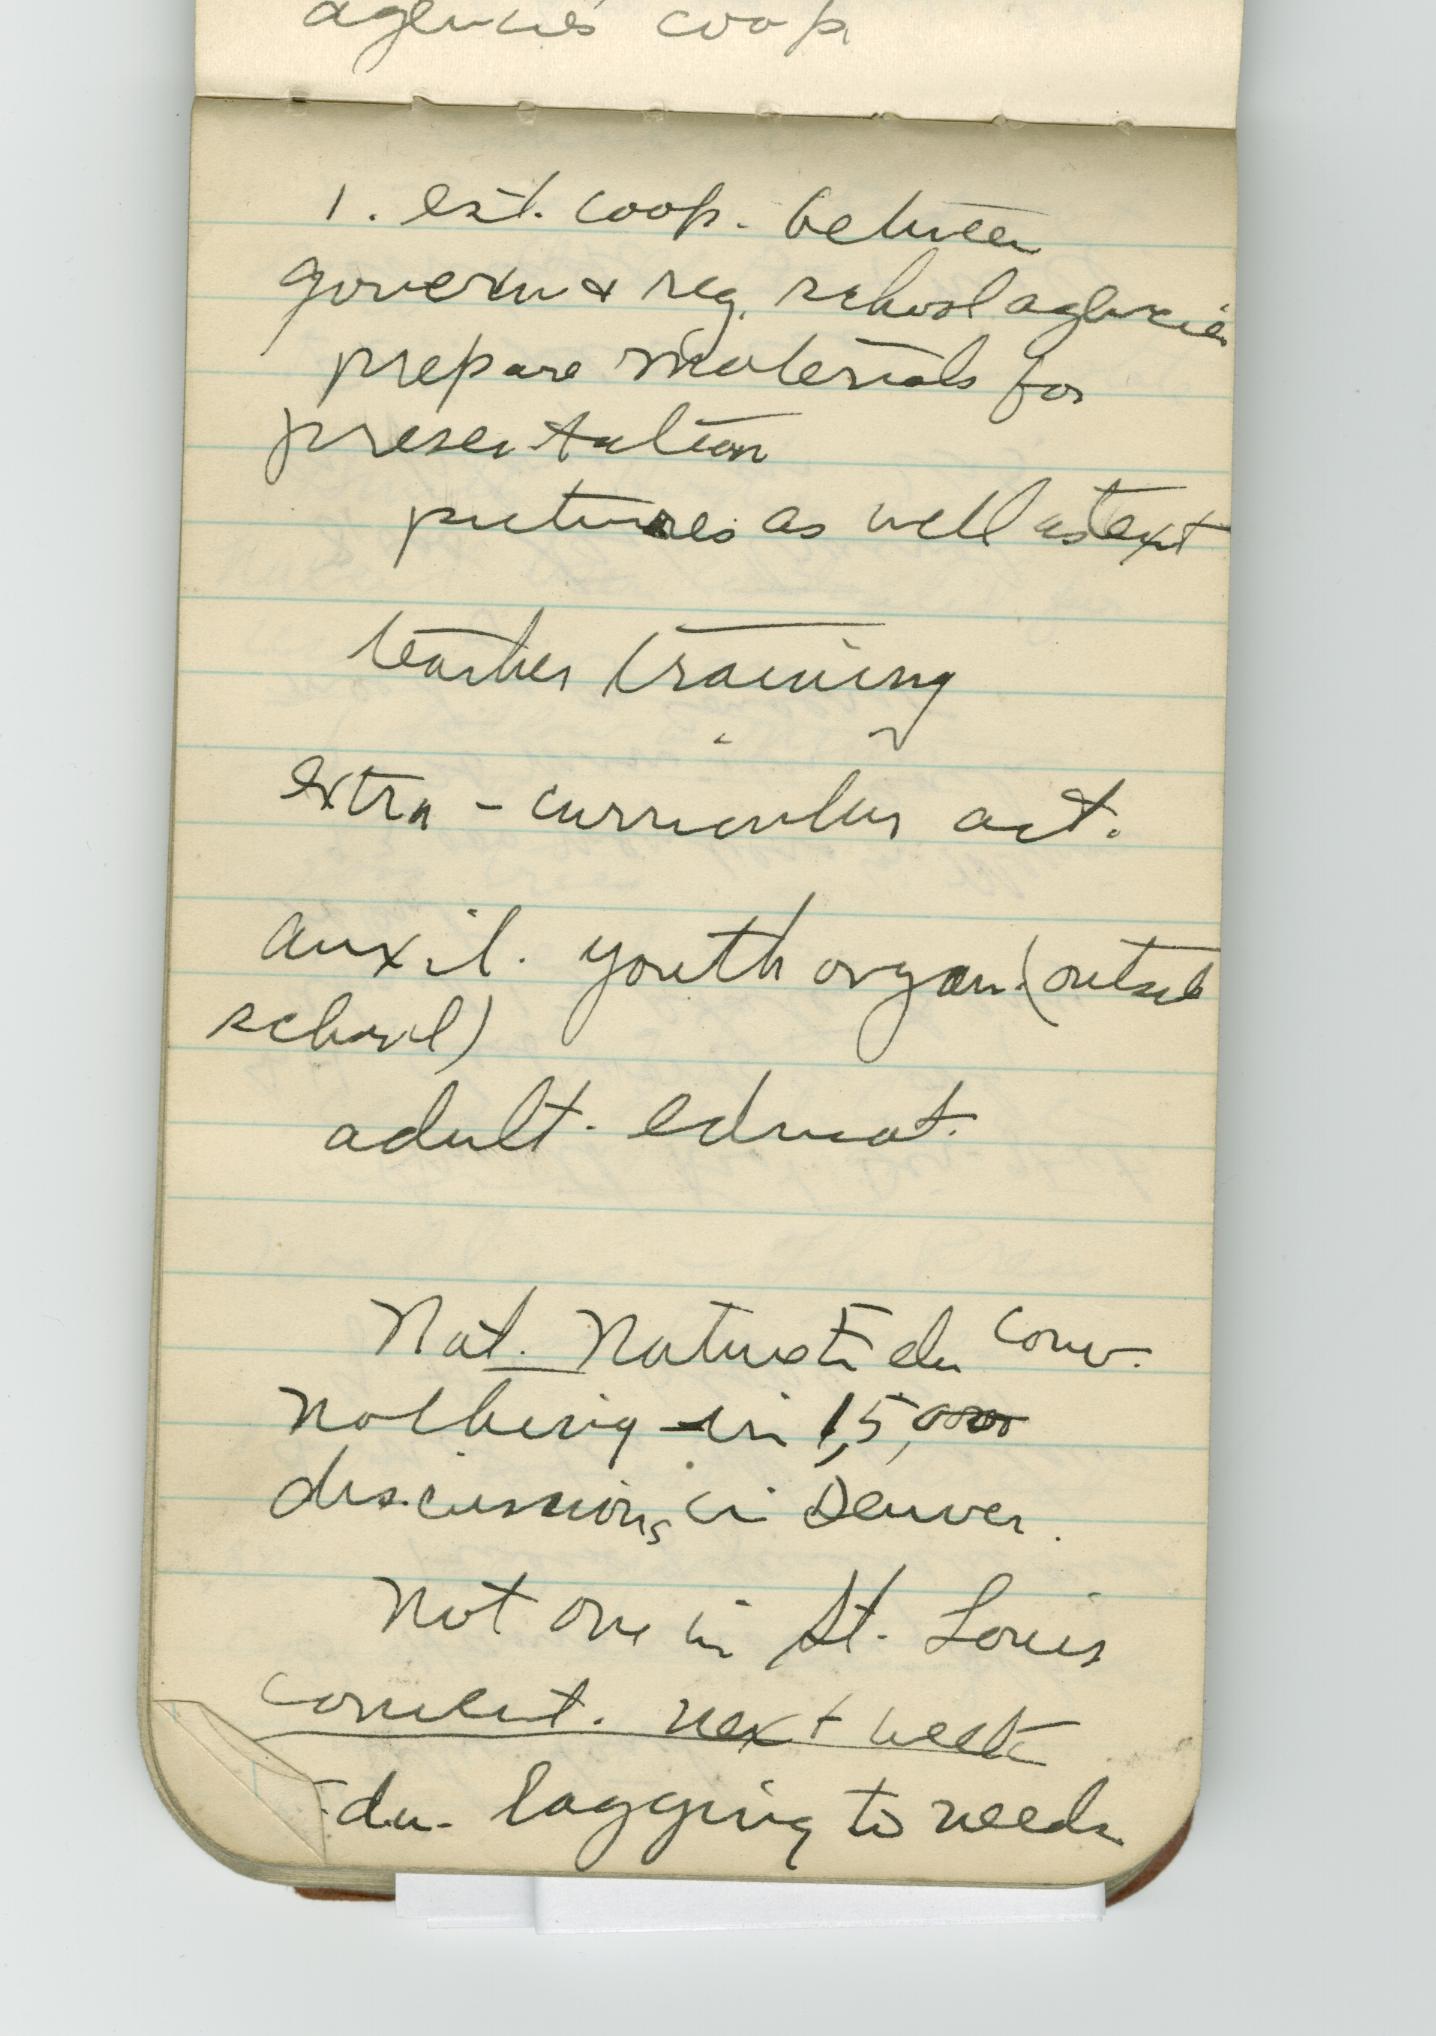 agencies coop
1. est. coop. between
govern & reg. school agencies
prepare materials for
presentation
pictures as well as text
teacher training
extra-curricular act.
auxil. youth organ. (outside
school)
adult. educat.
Nat. Edu conv.
nothing in 15,000
discussions in Denver.
Not one in St. Louis
convent. next week
Edu. lagging to needs